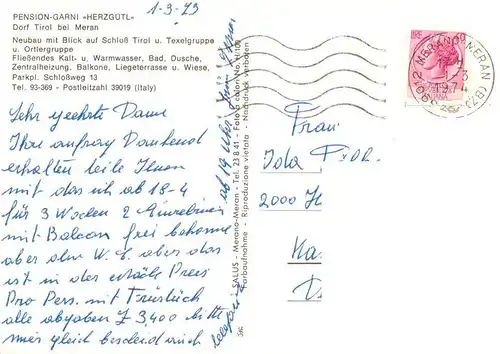 PENSION-GARNI «HERZGÜTL»
Dorf Tirol bei Meran
Neubau mit Blick auf Schloß Tirol u. Texelgruppe
u. Ortlergruppe
Fließendes Kalt- u. Warmwasser, Bad, Dusche,
Zentralheizung, Balkone, Liegeterrasse u. Wiese,
Parkpl. Schloßweg 13
Tel. 93-369 - Postleitzahl 39019 (Italy)
1-3-73
Sehr geehrte Dame
Ihre anfrag Dankend
erhalten teile Ihnen
mit das ich ab 18-4
für 3 Wochen 2
mit Balcon frei bekomme
aber ohne W. C. aber das
ist in der etasche Preis
Pro Pers. mit Früstück
alle abgaben £ 3,400 bitte
mir gleich bescheid auch
telefonisch ab 19 Uhr
SALUS - Merano-Meran - Tel. 23 8 41 - Foto
Farbaufnahme - Riproduzione vietata - Nachdruck verboten
39012 MERANO-MERAN (BZ)
1974
Frau
Ida
2000 H